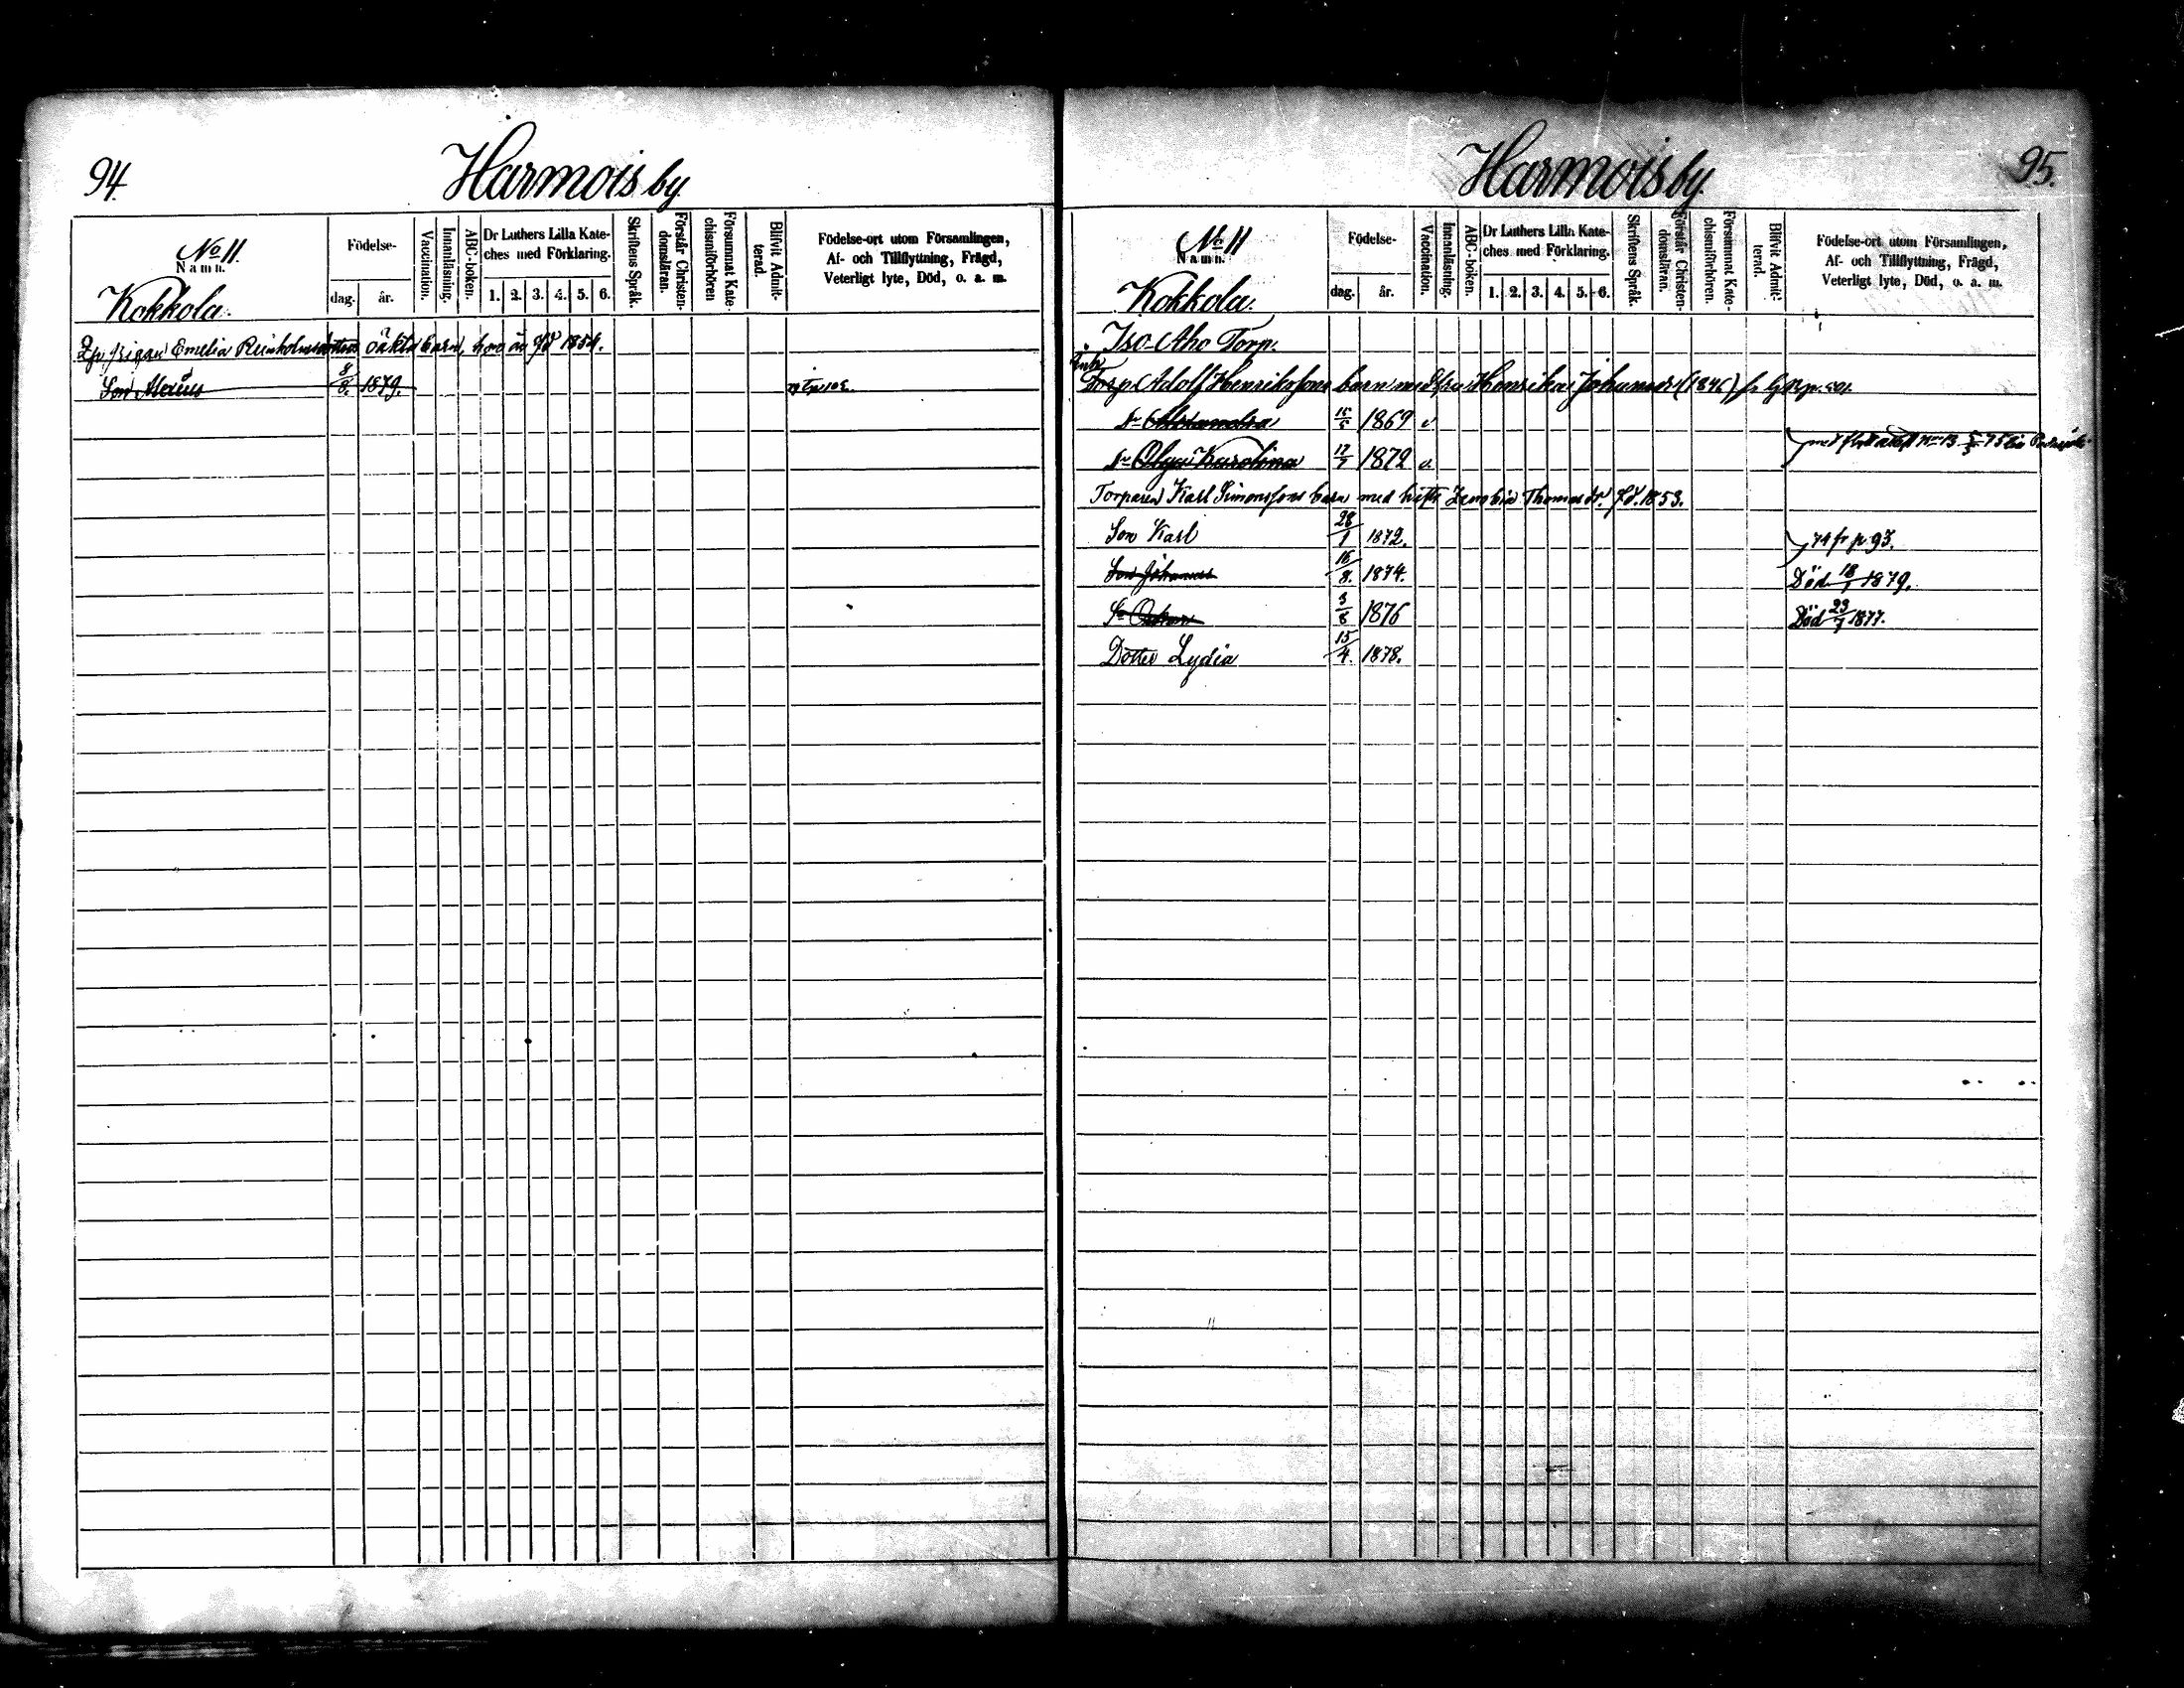 94.
Harmois by
No 11.
Namn.
Kokkola.
Födelse-
dag.
år.
Vaccination.
Innanläsning.
ABC-boken.
Dr Luthers Lilla Kate-
ches med Förklaring.
1. 2. 3. 4. 5. 6.
Skriftens Språk.
Förstår Christen-
domsläran.
Försummat Kate-
chismiförhören
Blifvit Admit-
terad.
Födelse-ort utom Församlingen,
Af- och Tillflyttning, Frägd,
Veterligt lyte, Död, o. a. m.
Emelia Reinholms oäkta barn, hon är fd 1854.
Son 8/8. 1879.
Harmois by.
95.
No 11
Namn.
Kokkola.
Födelse-
dag.
år.
Vaccination.
Innanläsning.
ABC-boken.
Dr Luthers Lilla Kate-
ches med Förklaring.
1. 2. 3. 4. 5. 6.
Skriftens Språk.
Förstår Christen-
domsläran.
Försummat Kate-
chismiförhören.
Blifvit Admit-
terad.
Födelse-ort utom Församlingen,
Af- och Tillflyttning, Frägd,
Veterligt lyte, Död, o. a. m.
Iso-Aho Torp.
Enk
Torp Adolf Henrikssons barn med Henrika Johansdr (1846)
Dr Alexandra 15/5 1869 v
Dr Olga Karolina 17/7 1872 v.
Torparen Karl Simonssons barn med hustr Zenobia Thomasdr. fd. 1853.
Son Karl 28/1 1872. 74 fr p 93.
Son Johannes 16/8. 1874. Död 18/1 1879.
Sn Oskar 3/8 1876 Död 23/7 1877.
Dotter Lydia 15/4. 1878.